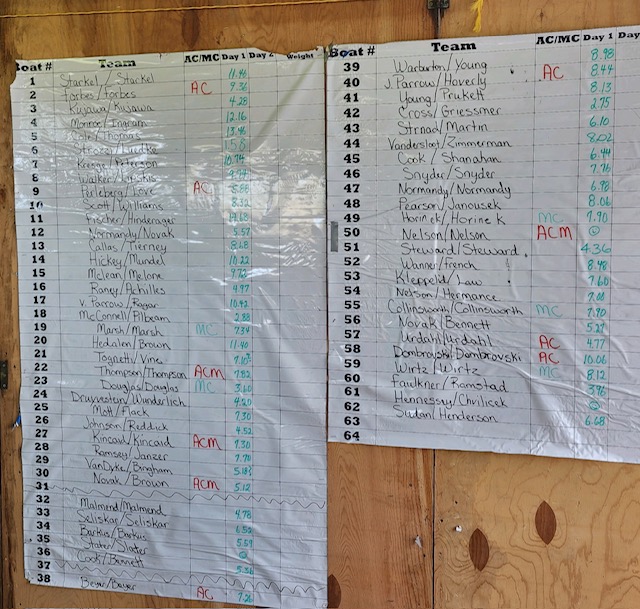 Boat # Team AC/MC Day 1 Day 2 Weight
1 Starkel/Starkel 11.46
2 Forbes/Forbes AC 9.36
3 Kujawa/Kujawa 4.28
4 Monroe/Ingram 12.16
5 /Thomas 13.46
6 1.58
7 Kresge/Peterson 10.74
8 Walker/
9 Perleberg/Love AC 8.88
10 Scott/Williams 8.32
11 Fischer/Hinderager
12 Normandy/Novak 5.57
13 Callas/Tierney 8.28
14 Hickey/Mundel 10.22
15 McLean/Melone 9.72
16 Raney/Achilles 4.97
17 V. Parrow/Rogar 10.42
18 McConnell/Pilbeam 2.88
19 Marsh/Marsh MC 7.34
20 Hedalen/Brown 11.40
21 Tognetti/Vine
22 Thompson/Thompson ACM 7.82
23 Douglas/Douglas MC 3.60
24 /Wunderlich 4.20
25 Mott/Flack 7.30
26 Johnson/Reddick 4.52
27 Kincaid/Kincaid ACM 9.30
28 Ramsey/Janzer 7.70
29 VanDyke/Bingham
30 Novak/Brown ACM 5.12
31
32 Malmend/Malmend 4.78
33 Seliskar/Seliskar
34 Barkus/Barkus 5.59
35 Slater/Slater
36 Cook/Bennett 5.56
37
38 Beyer/Beyer AC 7.26
Boat # Team AC/MC Day 1 Day
39 Warburton/Young 8.98
40 J. Parrow/Hoverly AC 8.44
41 Young/Prukett 8.13
42 Cross/Griessmer 2.75
43 Strnad/Martin 6.10
44 Vandersloot/Zimmerman 8.02
45 Cook/Shanahan 6.44
46 Snyder/Snyder 7.76
47 Normandy/Normandy 6.98
48 Pearson/Janousek 8.06
49 Horinek/Horinek MC 7.90
50 Nelson/Nelson ACM
51 Steward/Steward 4.36
52 Wanner/French 8.48
53 Kleppeld/Law 7.60
54 Nelson/Hermance 7.00
55 Collinsworth/Collinsworth MC 7.90
56 Novak/Bennett 5.27
57 Urdahl/Urdahl AC 4.77
58 Dombrovski/Dombrovski AC 10.06
59 Wirtz/Wirtz MC 8.12
60 Faulkner/Ramstad
61 Hennessy/Chrilicek
62 Sudan/Henderson 6.68
63
64